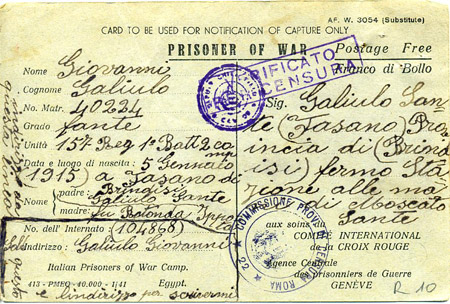 AF. W. 3054 (Substitute)
CARD TO BE USED FOR NOTIFICATION OF CAPTURE ONLY
PRISONER OF WAR
Postage Free
Franco di Bollo
VERIFICATO
CENSURA
Nome Giovanni
Cognome Galiulo
No. Matr. 40224
Grado fante
Unità 157 Reg 1º Batt 2 com
Data e luogo di nascita: 5 Gennaio
(1915) a Fasano di
Brindisi
padre: Galiulo Sante
Nome
madre: fu Rotonda
No. dell' Internato: (104868)
Indirizzo: Galiulo Giovanni
Italian Prisoners of War Camp.
413—PMEQ—40.000—1/41 Egypt.
e lindirizzo per scrivermi
questo
Sig. Galiulo San-
te (Fasano) Pro
vincia di (Brindi
si) fermo Sta
zione alle
di
Sante
aux soins du COMITE INTERNATIONAL
de la CROIX ROUGE
Agence Centrale
des prisonniers de Guerre
GENÈVE
COMMISSIONE PROVINCIALE CENSURA ROMA
22
R 10